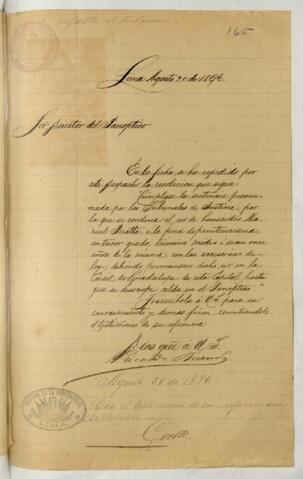 165
Lima Agosto 20 de 1896.
Sor Director del Panóptico
En la fecha, se ha expedido por
este despacho la resolucion que sigue
"Cumplase la sentencia pronun-
ciada por los Tribunales de Justicia, por
la que se condena al reo de homicidio Ma-
nuel á la pena de penitenciaria
en tercer grado, término medio ó sean once
años de la misma con las accesorias de
ley; debiendo permanecer dicho reo en la
Carcel de Guadalupe de esta Capital, hasta
que se desocupe celda en el Panóptico"
Trascríbola á US. para su
conocimiento y demas fines, remitiéndole
el testimonio de su referencia
Dios gue á US.
Ricardo
Agosto 28 de 1896
Con el testimonio de su referencia
LIMA